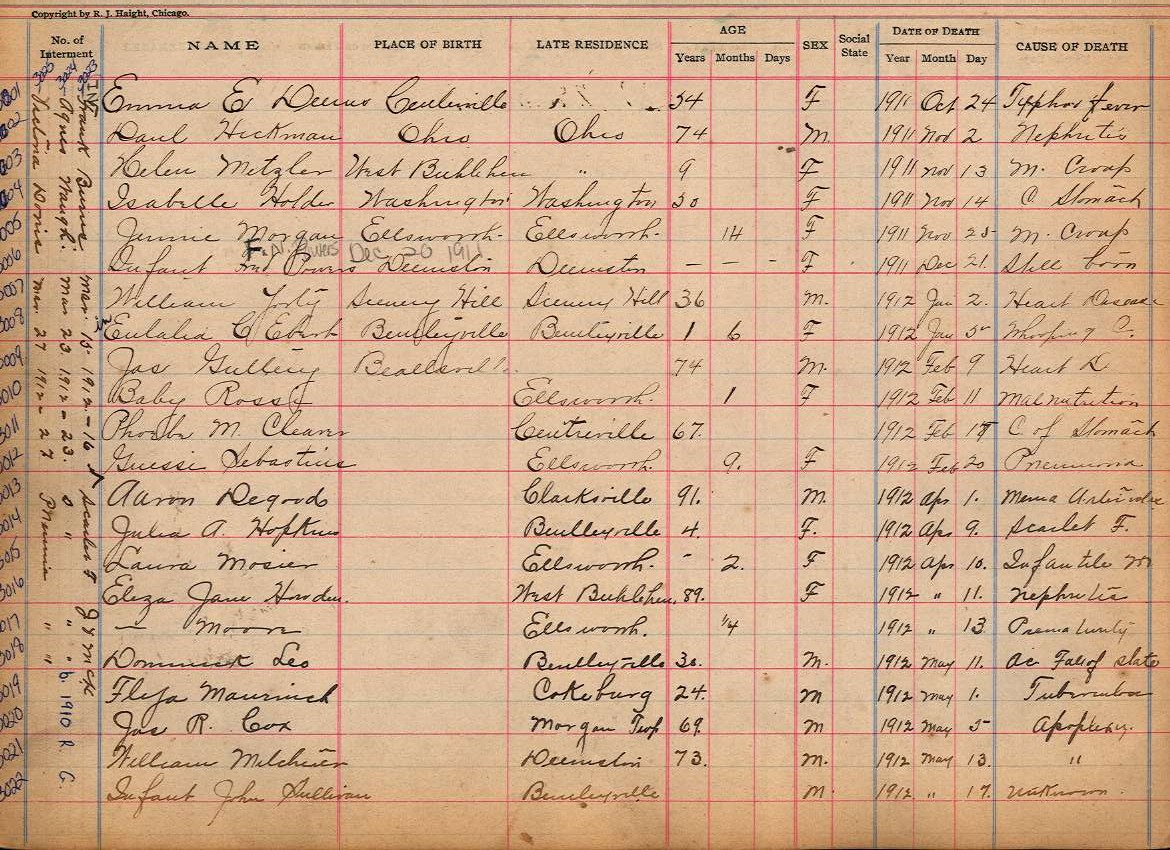 Copyright by R. J. Haight, Chicago.
No. of Interment NAME PLACE OF BIRTH LATE RESIDENCE AGE Years Months Days SEX Social State DATE OF DEATH Year Month Day CAUSE OF DEATH
Emma E Deems Centerville 54 F 1911 Oct 24 Typhoi fever
02 Paul Hickman Ohio Ohio 74 M. 1911 Nov 2 Nephritis
03 Helen Metzler West Bethlehem " 9 F 1911 Nov 13 M. Croup
04 Isabelle Holder Washington Washington 30 F 1911 Nov 14 C. Stomach
005 Jennie Morgan Ellsworth Ellsworth. 14 F 1911 Nov 25 M. Croup
Dec 20 1911
006 Infant Powers Deemston Deemston — — - F 1911 Dec 21. Still born
007 William Scenery Hill Scenery Hill 36 M. 1912 Jan 2. Heart Disease
008 Eulalia C Ebert Bentleyville Bentleyville 1 6 F 1912 Jan 5 Whooping C.
009 Jas Beallsvil 74 M. 1912 Feb 9 Heart D
010 Baby Ross Ellsworth. 1 F 1912 Feb 11 Malnutrition
3011 Phoebe M. Cleaver Centreville 67. 1912 Feb C of Stomach
3012 Sebastius Ellsworth. 9. F 1912 Feb 20 Pneumonia
3013 Aaron Degood Clarksville 91. M. 1912 Apr 1.
3014 Julia A. Hopkins Bentleyville 4. F. 1912 Apr 9. Scarlet F.
3015 Laura Mosier Ellsworth. - 2. F 1912 Apr 10. Infantile
3016 Eliza Jane Howden. West Bethlehem, 89. F 1912 " 11. Nephritis
3017 — Moore Ellsworth. 1/4 1912 " 13 Prematurity
3018 Dominick Leo Bentleyville 30. M. 1912 May 11. Ac Fall of slate
3019 Cokeburg 24. M 1912 May 1. Tuberculos
3020 Jas R. Cox Morgan Twp 69. M 1912 May 5 Apoplexy.
3021 William Milchier Deemston 73. M. 1912 May 13. "
3022 Infant John Sullivan Bentleyville M 1912. " 17. unknown.
3023 Frank Mar 15 1912 - 16 Scarlet F
3024 Agnes Waugh. Mar 23 1912 - 23. b. 1910 R G.
3025 Victoria Mar. 27 1912 - 27